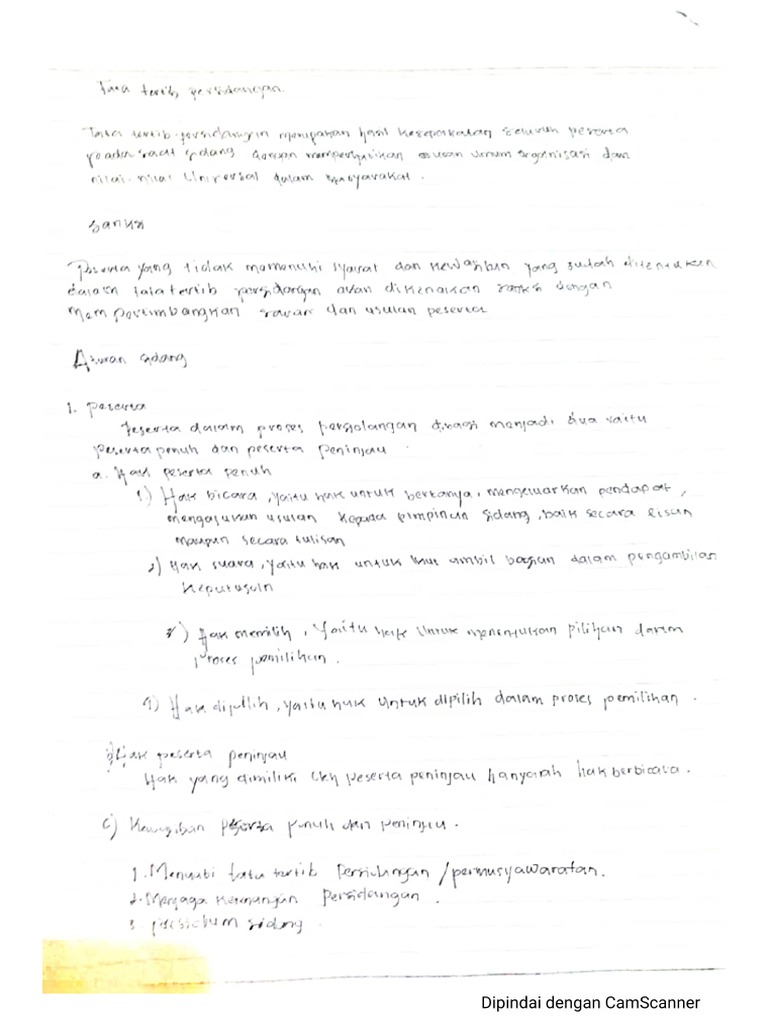 Tata tertib persidangan.
Tata tertib persidangan merupakan hasil kesepakatan seluruh peserta
pada saat sidang dengan memperhatikan aturan umum organisasi dan
nilai-nilai universal dalam masyarakat.
Sanksi
Peserta yang tidak memenuhi syarat dan kewajiban yang sudah ditentukan
dalam tata tertib persidangan akan dikenakan sanksi dengan
mempertimbangkan saran dan usulan peserta
Aturan sidang
1. peserta
Peserta dalam proses persidangan dibagi menjadi dua yaitu
peserta penuh dan peserta peninjau
a. Hak peserta penuh
1) Hak bicara, yaitu hak untuk bertanya, mengeluarkan pendapat,
mengajukan usulan kepada pimpinan sidang, baik secara lisan
maupun secara tulisan
2) Hak suara, yaitu hak untuk ikut ambil bagian dalam pengambilan
keputusan
3) Hak memilih, yaitu hak untuk menentukan pilihan dalam
proses pemilihan.
4) Hak dipilih, yaitu hak untuk dipilih dalam proses pemilihan.
Hak peserta peninjau
Hak yang dimiliki oleh peserta peninjau hanyalah hak berbicara.
c) Kewajiban peserta penuh dan peninjau.
1. Mentaati tata tertib Persidangan/permusyawaratan.
2. Menjaga ketenangan Persidangan.
3. presidium sidang
Dipindai dengan CamScanner